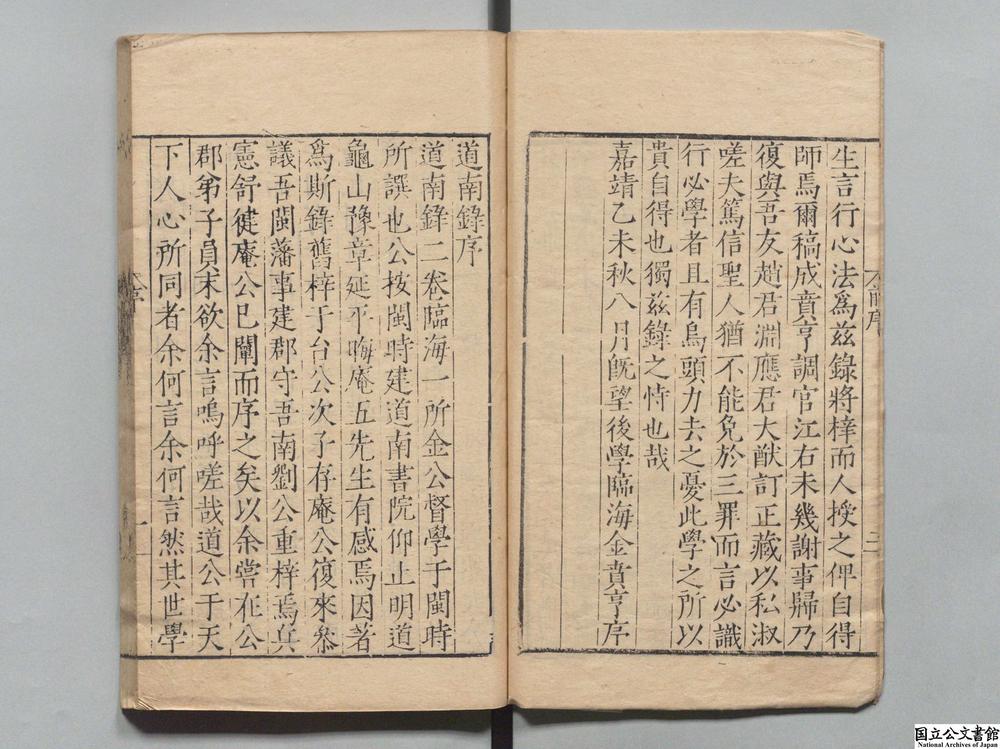 生言行心法爲兹錄將梓而人授之俾自得
師焉爾稿成賁亨調官江右未幾謝事歸乃
復與吾友趙君淵應君大猷訂正藏以私淑
嗟夫篤信聖人猶不能免於三罪而言必識
行必學者且有烏頭力去之憂此學之所以
貴自得也獨兹錄之恃也哉
嘉靖乙未秋八月旣望後學臨海金賁亨序
前序
三
道南錄序
道南錄二卷臨海一所金公督學于閩時
所譔也公按閩時建道南書院仰止明道
龜山豫章延平晦庵五先生有感焉因著
爲斯錄舊梓于台公次子存庵公復來叅
議吾閩藩事建郡守吾南劉公重梓焉兵
憲舒徤庵公巳闡而序之矣以余嘗在公
郡弟子員末欲余言嗚呼嗟哉道公于天
下人心所同者余何言余何言然其世學
序
一
国立公文書館
National Archives of Japan